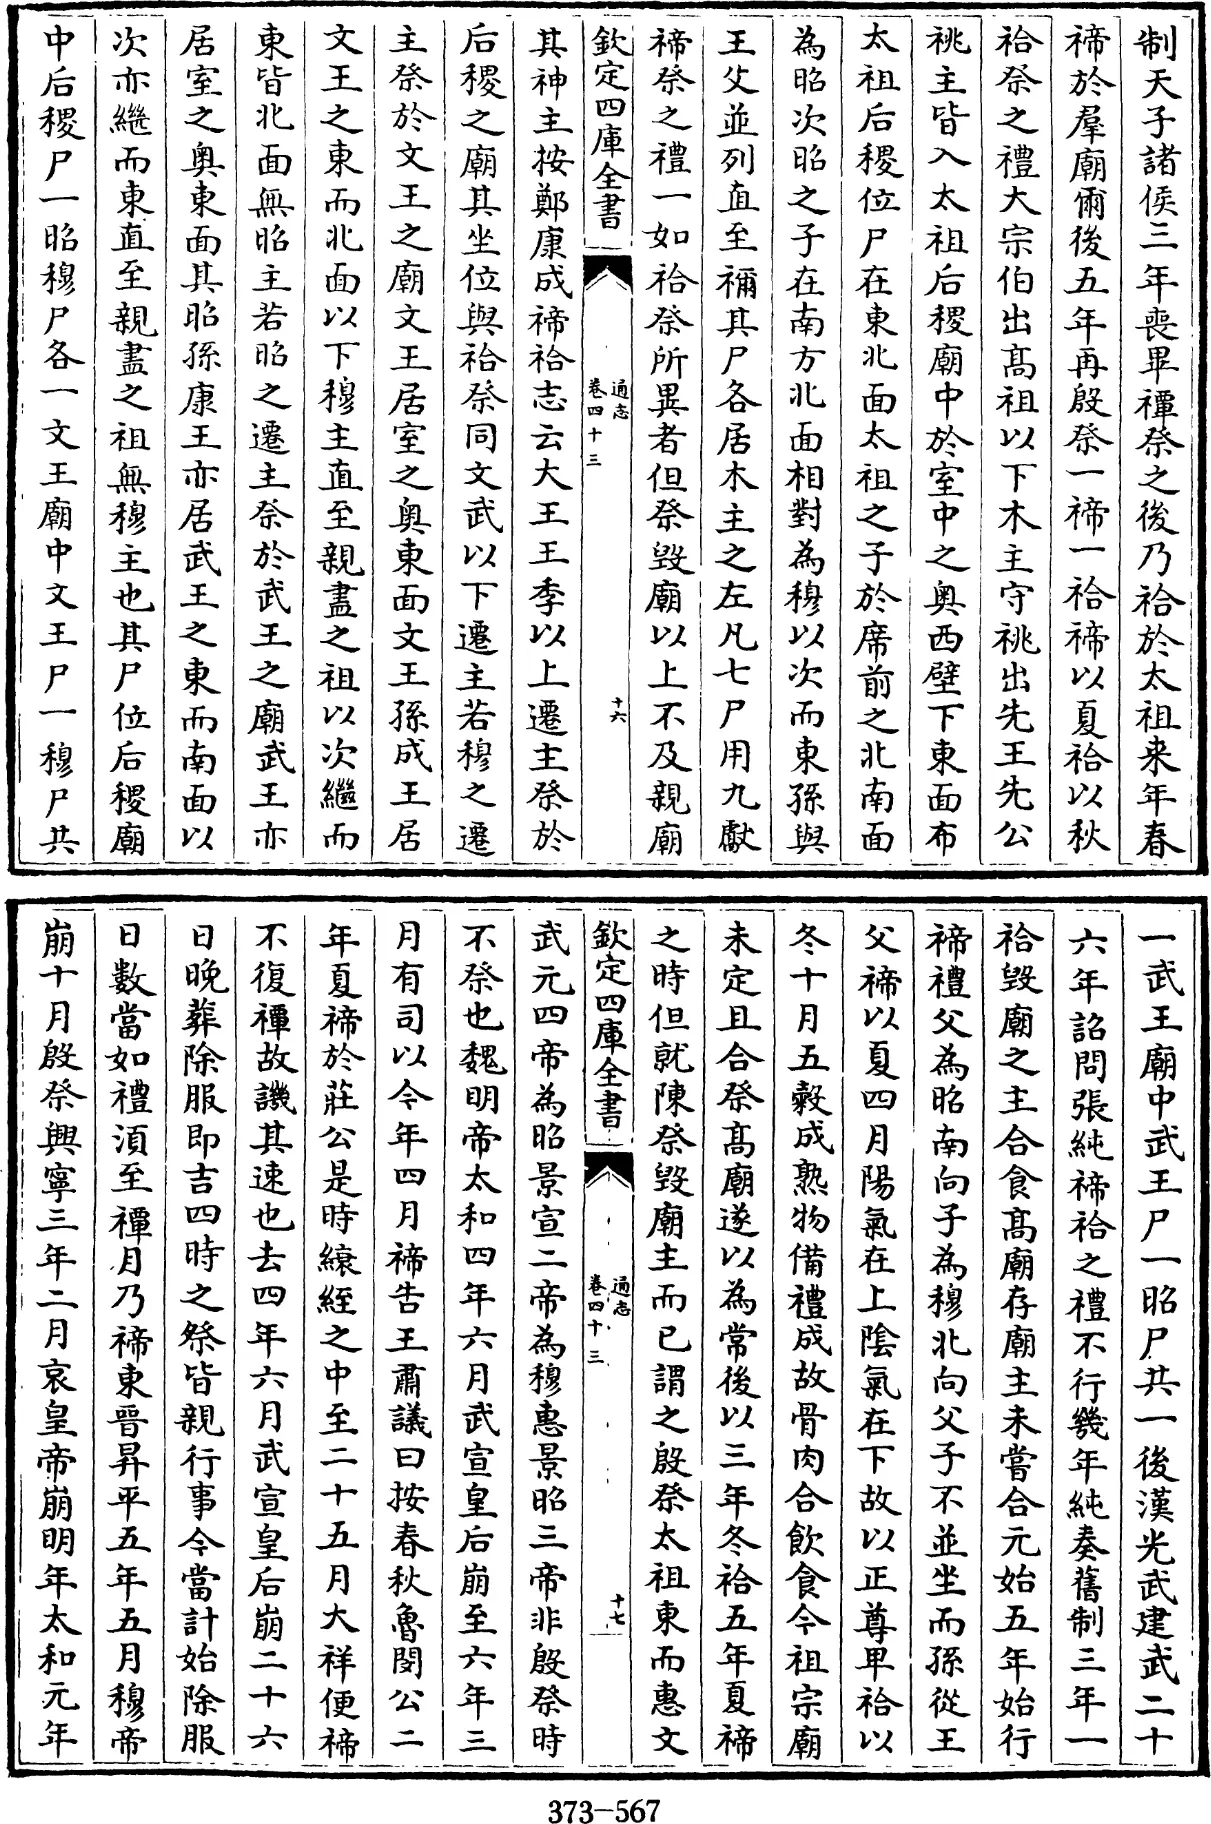 制天子諸侯三年喪畢禫祭之後乃祫於太祖来年春
禘於羣廟爾後五年再殷祭一禘一祫禘以夏祫以秋
祫祭之禮大宗伯出髙祖以下木主守祧出先王先公
祧主皆入太祖后稷廟中於室中之奥西壁下東面布
太祖后稷位尸在東北面太祖之子於席前之北南面
為昭次昭之子在南方北面相對為穆以次而東孫與
王父並列直至禰其尸各居木主之左凡七尸用九獻
禘祭之禮一如祫祭所異者但祭毁廟以上不及親廟
欽定四庫全書
通志
卷四十三
十六
其神主按鄭康成禘祫志云大王王季以上遷主祭於
后稷之廟其坐位與祫祭同文武以下遷主若穆之遷
主祭於文王之廟文王居室之奥東面文王孫成王居
文王之東而北面以下穆主直至親盡之祖以次繼而
東皆北面無昭主若昭之遷主祭於武王之廟武王亦
居室之奥東面其昭孫康王亦居武王之東而南面以
次亦繼而東直至親盡之祖無穆主也其尸位后稷廟
中后稷尸一昭穆尸各一文王廟中文王尸一穆尸共
一武王廟中武王尸一昭尸共一後漢光武建武二十
六年詔問張純禘祫之禮不行幾年純奏舊制三年一
祫毁廟之主合食髙廟存廟主未嘗合元始五年始行
禘禮父為昭南向子為穆北向父子不並坐而孫從王
父禘以夏四月陽氣在上陰氣在下故以正尊卑祫以
冬十月五穀成熟物備禮成故骨肉合飲食今祖宗廟
未定且合祭髙廟遂以為常後以三年冬祫五年夏禘
之時但就陳祭毁廟主而已謂之殷祭太祖東面惠文
欽定四庫全書
通志
卷四十三
十七
武元四帝為昭景宣二帝為穆惠景昭三帝非殷祭時
不祭也魏明帝太和四年六月武宣皇后崩至六年三
月有司以今年四月禘告王肅議曰按春秋魯閔公二
年夏禘於莊公是時縗絰之中至二十五月大祥便禘
不復禫故譏其速也去四年六月武宣皇后崩二十六
日晚葬除服即吉四時之祭皆親行事今當計始除服
日數當如禮湏至禫月乃禘東晉昇平五年五月穆帝
崩十月殷祭興寧三年二月哀皇帝崩明年太和元年
373-567